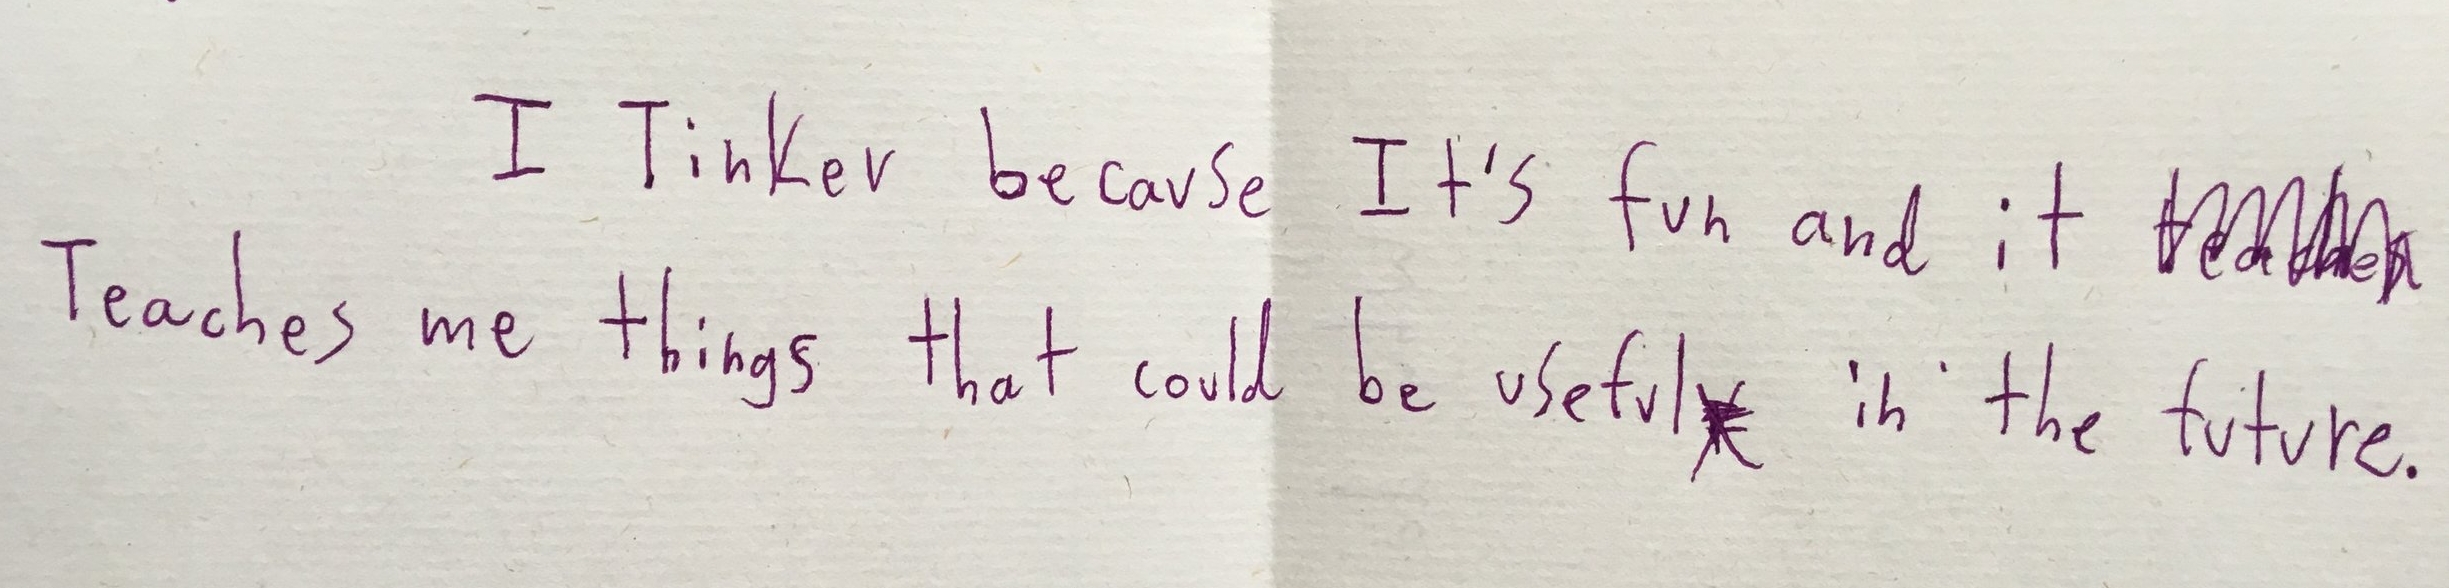 I Tinker because It's fun and it
Teaches me things that could be useful in the future.